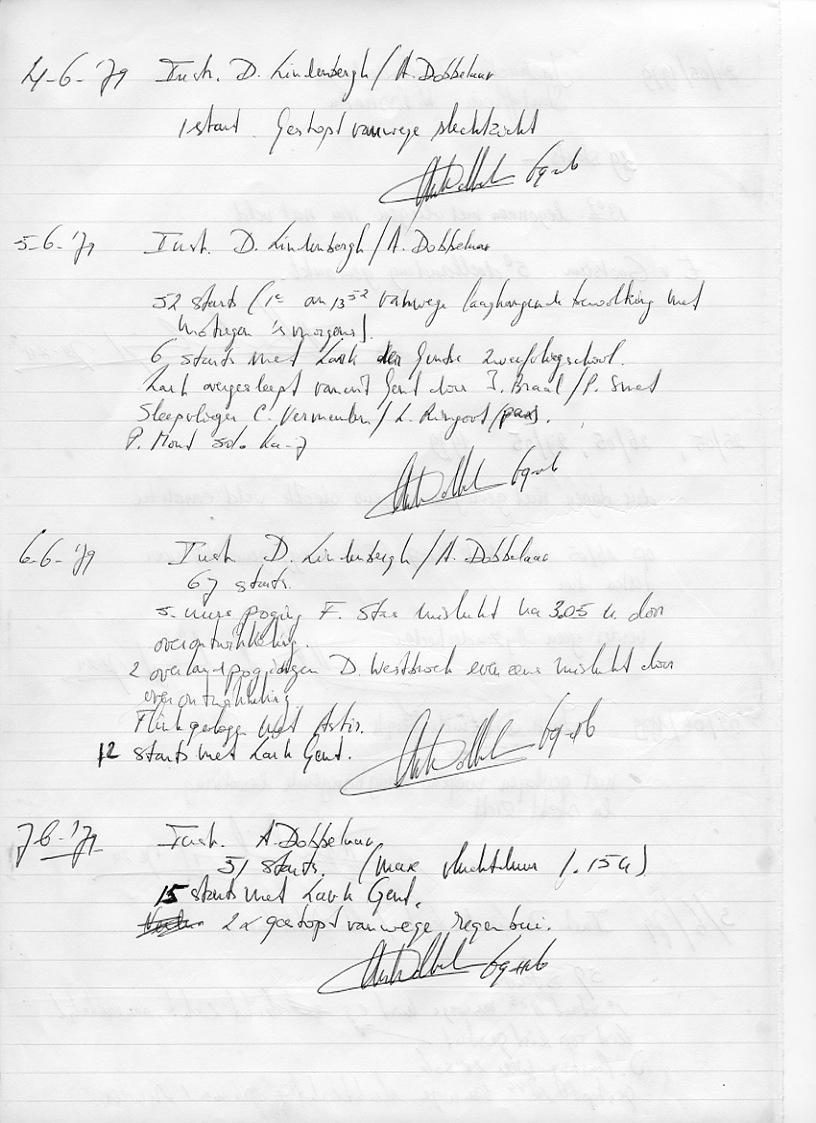 4-6-'79 Instr. D. Lindenbergh / A. Dobbelaar
1 start. Gestopt vanwege slecht zicht
5-6-'79 Instr. D. Lindenbergh / A. Dobbelaar
52 starts (1e om 13 52 vanwege laaghangende bewolking met
motregen 's morgens).
6 starts met Lark Gentse Zweefvliegschool.
Lark overgesleept vanuit Gent door J. Braal / P. Smet
Sleepvlieger C. Vermeulen / L. Ringoot (pax).
P. Mont solo Ka-7
6-6-'79 Instr. D. Lindenbergh / A. Dobbelaar
67 starts.
5-uurs poging F. Star mislukt na 3.05 u. door
overontwikkeling.
2 overlandpogingen D. Westbroek eveneens mislukt door
overontwikkeling.
Flink gevlogen met Astir.
12 starts met Lark Gent.
7-6-'79 Instr. A. Dobbelaar
51 starts. (max vluchtduur 1.15 u)
15 starts met Lark Gent.
2 x gestopt vanwege regenbui.